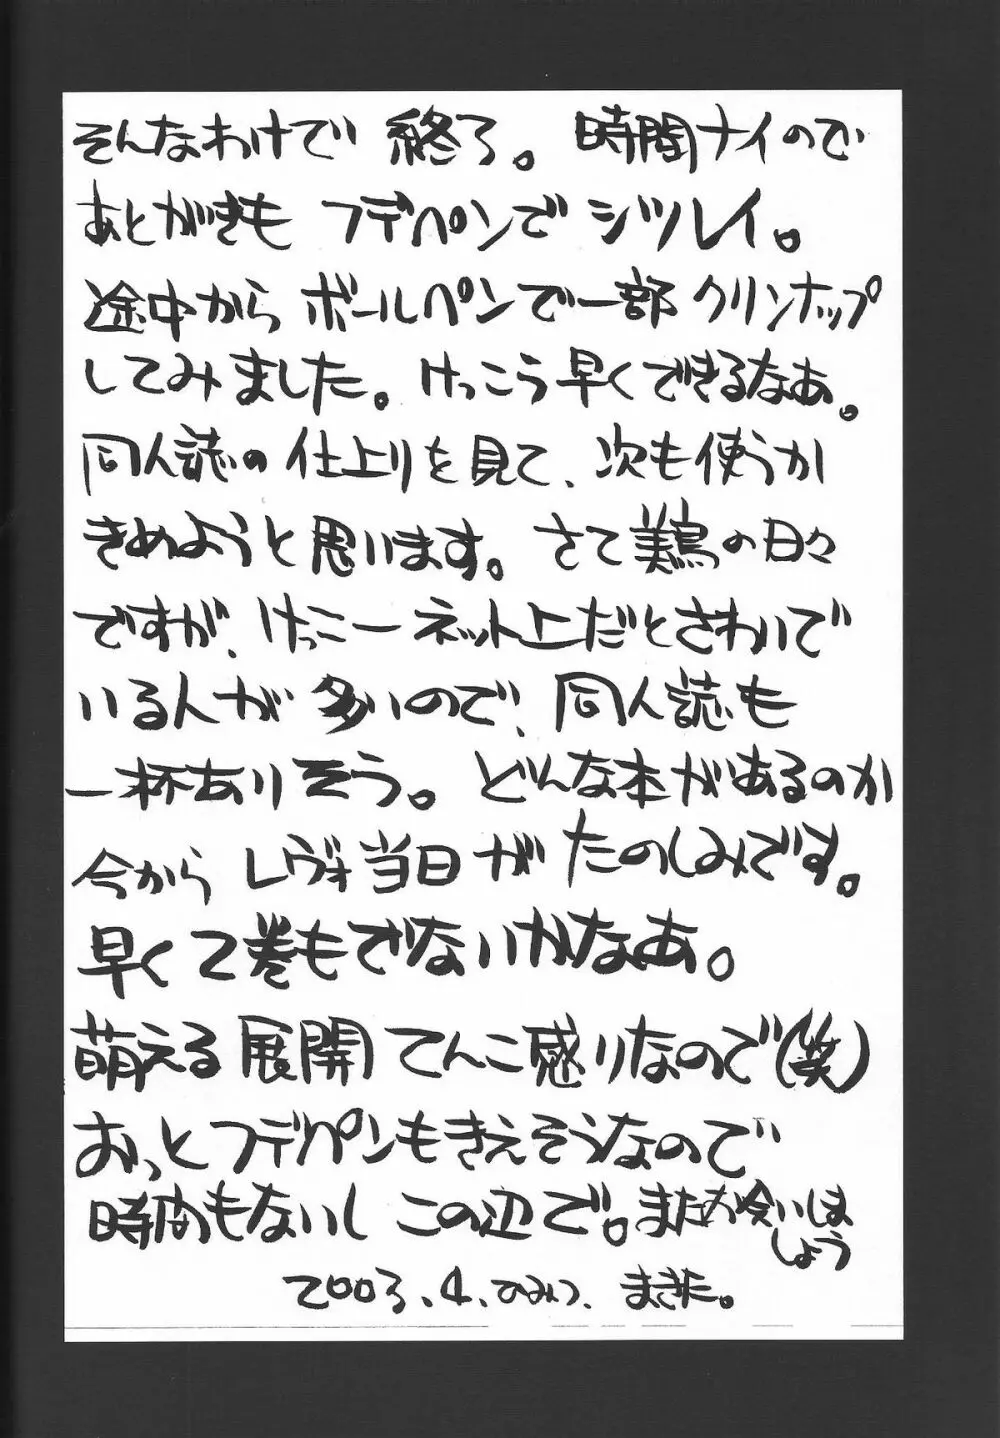 そんなわけで 終了。 時間ナイので
あとがきも フデペンで シツレイ。
途中から ボールペンで一部 クリンナップ
してみました。けっこう早くできるなあ。
同人誌の 仕上りを見て、次も使うか
きめようと思います。 さて 美鳥の日々
ですが、けっこーネット上だとさわいで
いる人が 多いので、同人誌も
一杯ありそう。 どんな本があるのか
今から レヴォ当日が たのしみです。
早く2巻もでないかなあ。
萌える展開 てんこ盛りなので(笑)
おっと フデペンもきえそうなので
時間もないし この辺で。またお会いしま
しょう
2003.4.ひみつ. まきた。